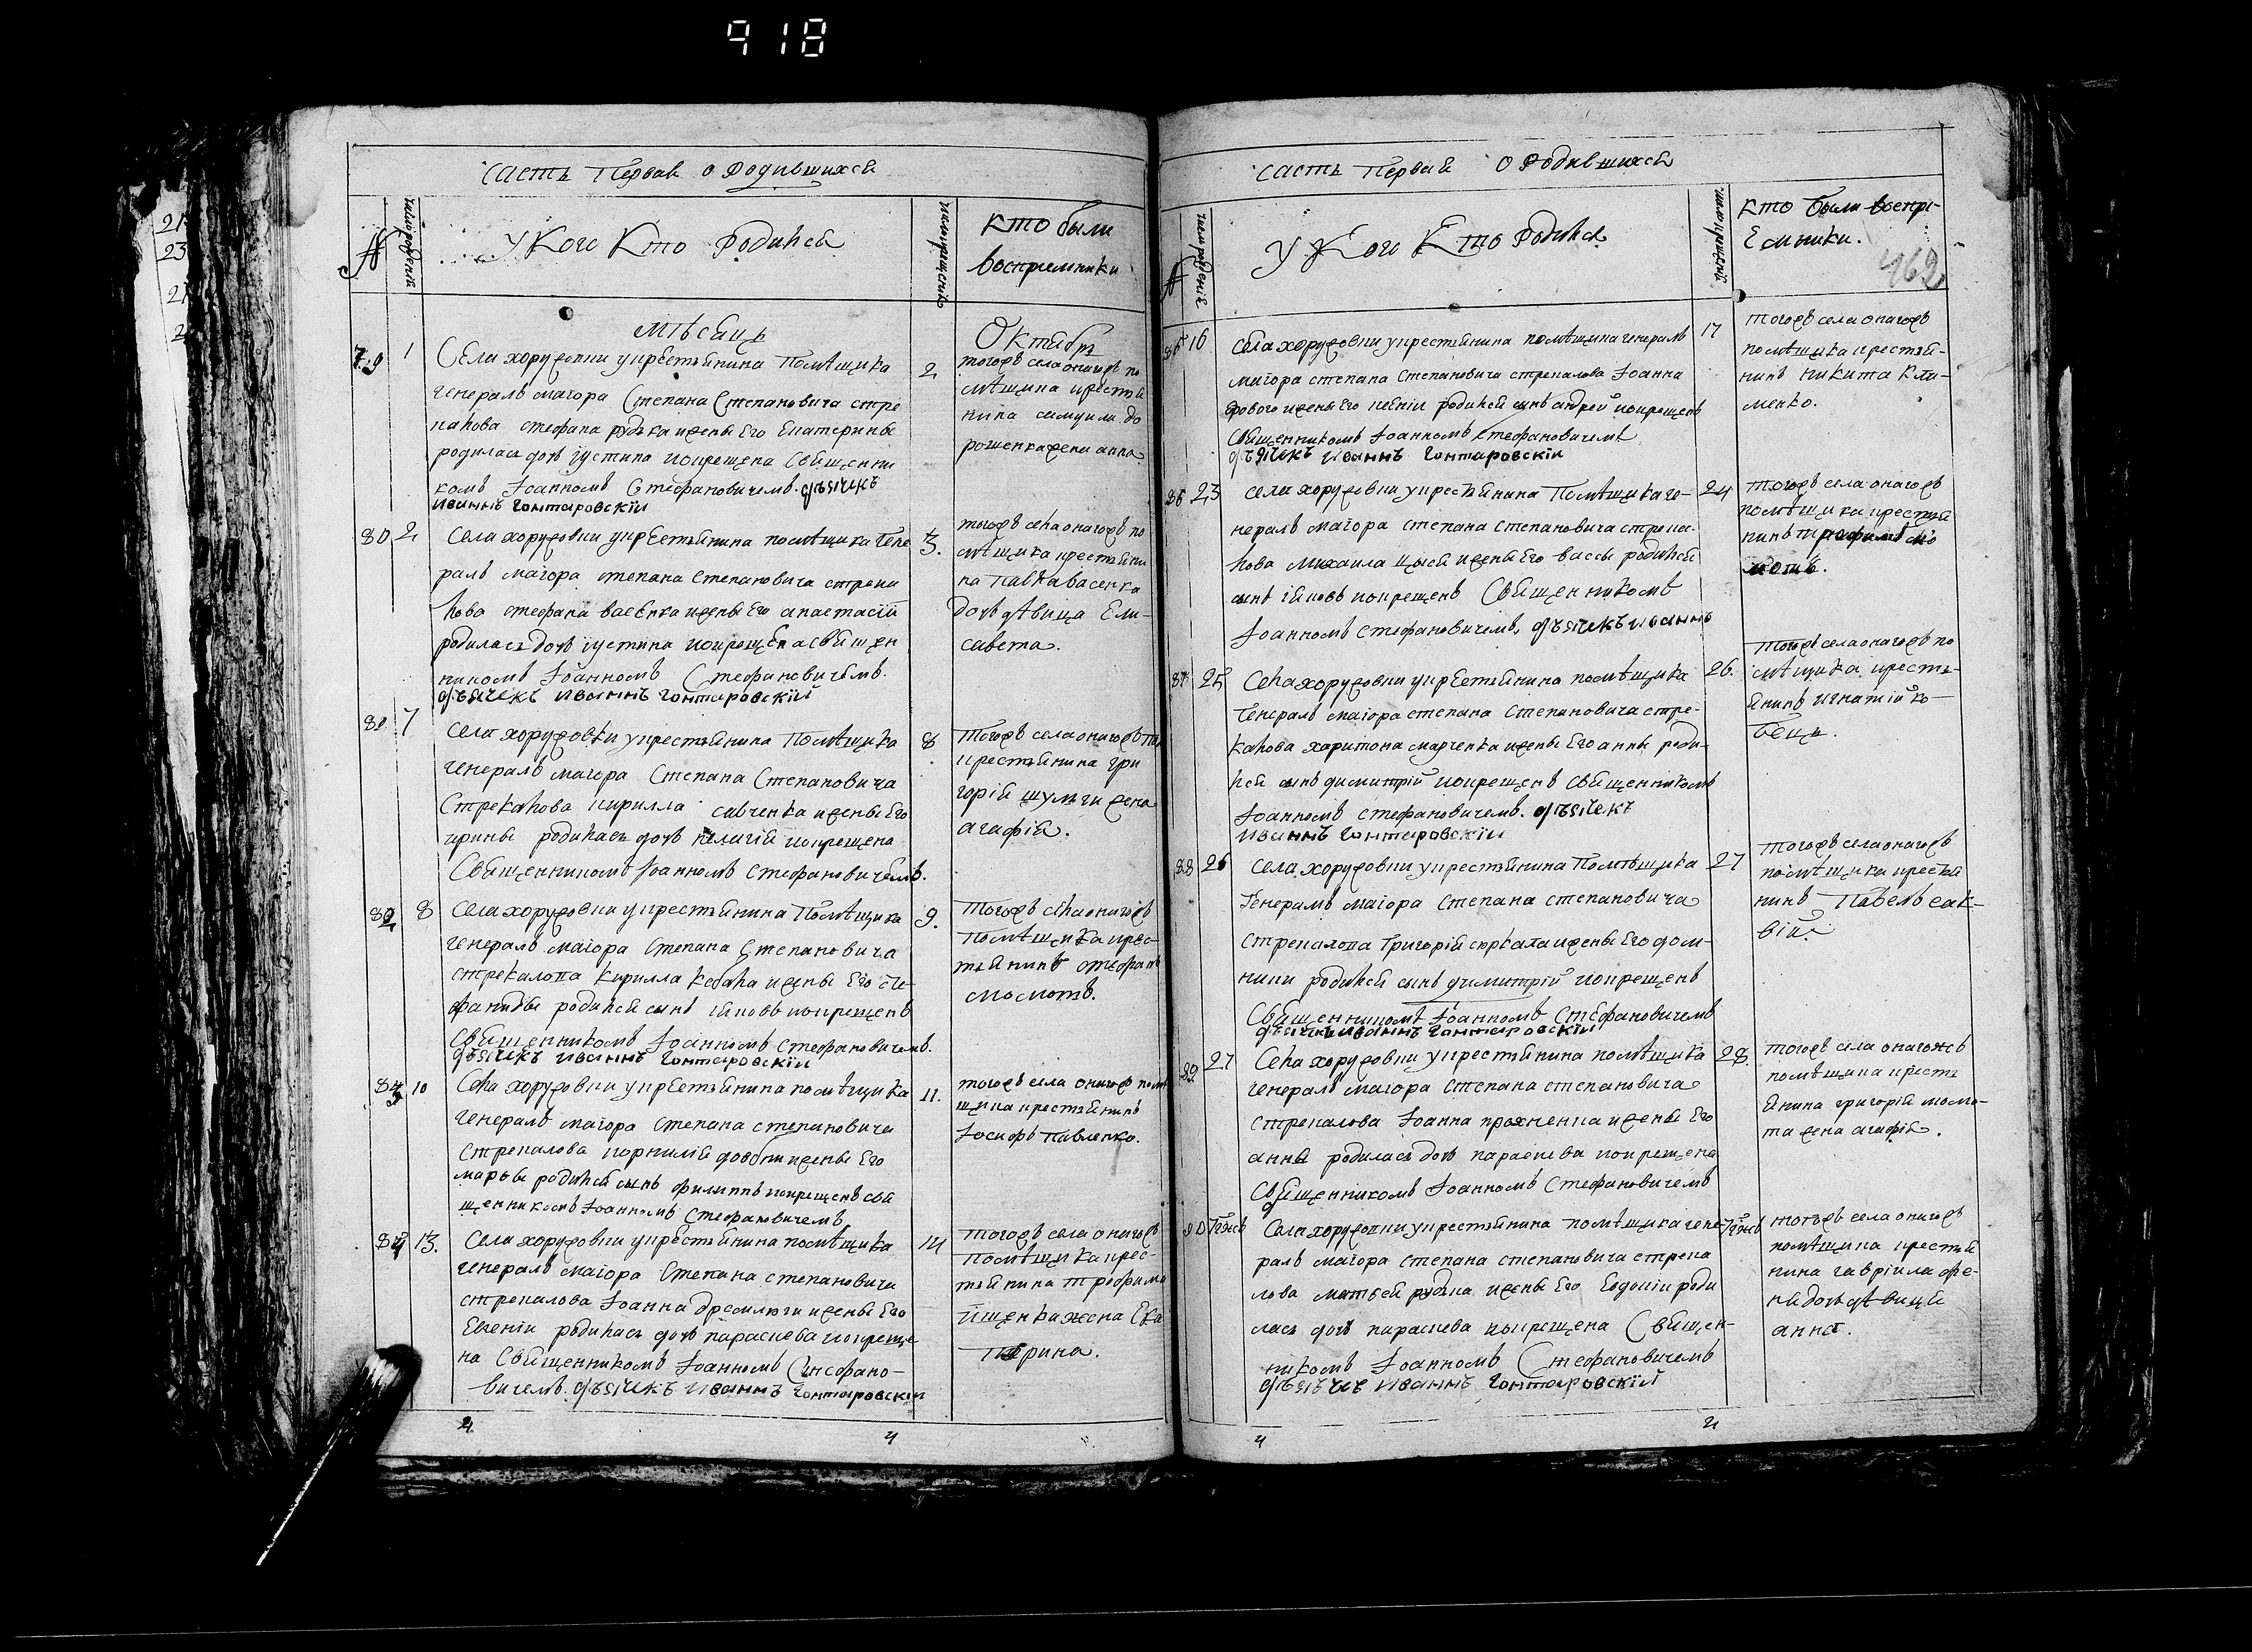 918
Часть Первая о Родившихся
№
число рождений
У Кого Кто Родился
число крещений
Кто были
воспрiемники
Мѣсяцъ
Октября
79
1
Села хоружовки у крестьянина Помѣщика
генералъ маiора Степана Степановича стре
калова стефана рудька и жены Его Екатерины
родилась дочь iустина и окрещена Священни
комъ Iоанномъ Стефановичемъ. дьячекъ
иваннъ Гонтаровскiи
2
тогожъ села оногожъ по
мѣщика крестья
нина самуила до
рошенка жена анна
80
2
Села хоружовки у крестьянина помѣщика Гене
ралъ маiора степана Степановича стрека
лова стефана васенка и жены Его анастасiи
родилась дочь iустина и окрещена Священ
никомъ Iоанномъ Стефановичемъ.
дьячекъ иваннъ Гонтаровскiй
3.
тогожъ села оногожъ по
мѣщика крестьяни
на Павла васенка
дочь дѣвица Ели-
савета.
81
7
Села хоружовки у крестьянина Помѣщика
генералъ маiора Степана Степановича
Стрекалова кирилла савченка и жены Его
ирины родилась дочь пелагiя и окрещена
Священникомъ Iоанномъ Стефановичемъ.
8
Тогожъ села оногожъ по
крестьянина гри
горiя шульги жена
агафiя.
82
8
Села хоружовки у крестьянина Помѣщика
генералъ маiора Степана Степановича
стрекалова Кирилла Кобала и жены Его сте
фаниды родился сынъ iяковъ и окрещенъ
Священникомъ Iоанномъ Стефановичемъ.
дьячекъ иваннъ Гонтаровскiи
9.
Тогожъ села оногожъ
Помѣщика крес-
тьянинъ стефанъ
момотъ.
83
10
Села хоружовки у крестьянина помѣщика
генералъ маiора Степана степановича
стрекалова корнилiя довбни и жены Его
марфы родился сынъ филиппъ и окрещенъ свя
щенникомъ Iоанномъ Стефановичемъ
11.
тогожъ села оногожъ помѣ
щика крестьянинъ
Iосифъ Павленко.
84
13.
Села хоружовки у крестьянина помѣщика
генералъ маiора Степана степановича
стрекалова Iоанна дремлюги и жены Его
Евгенiи родилась дочь параскева и окреще
на Священникомъ Iоанномъ Стефано-
вичемъ. дьячекъ иваннъ Гонтаровскiи
14
тогожъ села оногожъ
Помѣщика крес-
тьянина трофима
ищенка жена Ека
терина.
4
4
Часть Первая О Родившихся
№
число рожденiй
У Кого Кто Родился
число крещенiй
Кто были воспрi-
Емники.
462
85
16
Села хоружовки у крестьянина помѣщика генералъ
маiора степана Степановича стрекалова Iоанна
и жены Его родился сынъ андрей и окрещенъ
Священникомъ Iоанномъ Стефановичемъ
дьячекъ иваннъ Гонтаровскiи
17
тогожъ села оногожъ
помѣщика крестья-
нинъ никита кли-
менко.
86
23
Села хоружовки у крестьянина Помѣщика ге-
нералъ маiора степана Степановича стрека-
лова михаила и жены Его вассы родился
сынъ iяковъ и окрещенъ Священникомъ
Iоанномъ Стефановичемъ, дьячекъ иваннъ
24
тогожъ села оногожъ
помѣщика крестья
нинъ трофимъ мо
мотъ.
87
25
Села хоружовки у крестьянина помѣщика
Генералъ маiора степана Степановича стре-
калова харитона марченка и жены Его анны роди-
лся сынъ димитрiй и окрещенъ Священникомъ
Iоанномъ Стефановичемъ. дьячекъ
иваннъ Гонтаровскiи
26.
тогожъ села оногожъ по
мѣщика кресть-
янинъ игнатiй ко-
бецъ.
88
26
Села хоружовки у крестьянина Помѣщика
Генералъ маiора Степана степановича
стрекалова Григорiя сюркала и жены Его дом-
ники родился сынъ димитрiй и окрещенъ
Священникомъ Iоанномъ Стефановичемъ
дьячекъ иваннъ Гонтаровскiи
27
тогожъ села оногожъ
помѣщика крестья
нинъ Павелъ сак-
вiй
89
27
Села хоружовки у крестьянина помѣщика
генералъ маiора степана степановича
стрекалова Iоанна проxненка и жены Его
анны родилась дочь параскева и окрещена
Священникомъ Iоанномъ Стефановичемъ
28.
тогожъ села оногожъ
помѣщика кресть
янина григорiя момо-
та жена агафiя.
90
Тогожъ
Села хоружовки у крестьянина помѣщика гене
ралъ маiора степана степановича стрека
лова матвея рудька и жены Его Евдокiи роди
лась дочь параскева и окрещена Священ-
никомъ Iоанномъ Стефановичемъ
дьячекъ иваннъ Гонтаровскiй
Тогожъ
тогожъ села оногожъ
помѣщика крестья
нина гаврiила фе-
дочь дѣвица
анна.
4
4